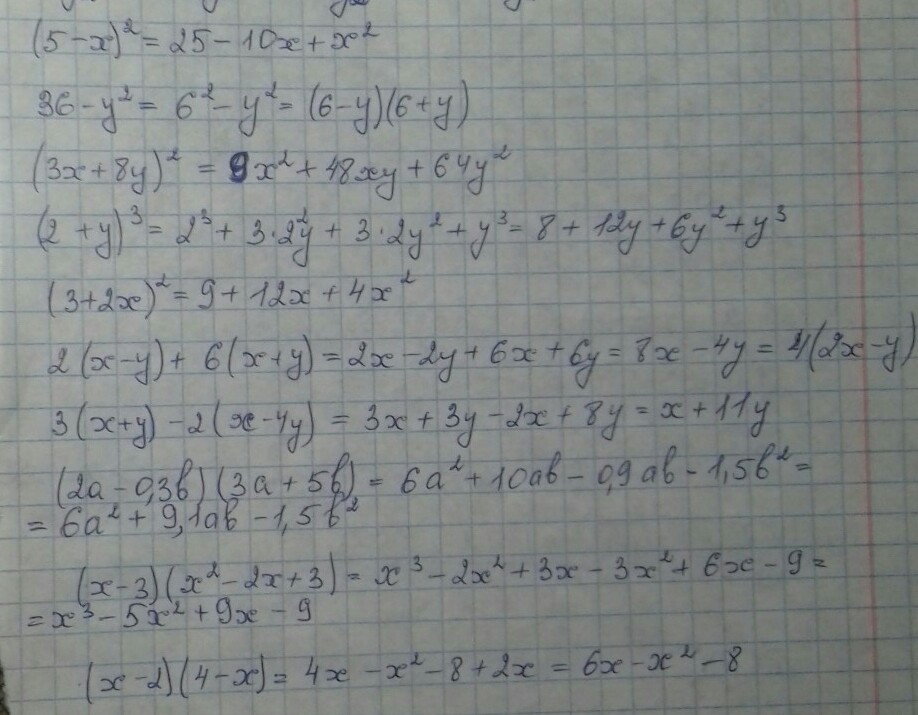 (5-x)² = 25-10x+x²
36-y² = 6²-y² = (6-y)(6+y)
(3x+8y)² = 9x²+48xy+64y²
(2+y)³ = 2³+3·2²y+3·2y²+y³ = 8+12y+6y²+y³
(3+2x)² = 9+12x+4x²
2(x-y)+6(x+y) = 2x-2y+6x+6y = 8x-4y = 4(2x-y)
3(x+y)-2(x-4y) = 3x+3y-2x+8y = x+11y
(2a-0,3b)(3a+5b) = 6a²+10ab-0,9ab-1,5b² =
= 6a²+9,1ab-1,5b²
(x-3)(x²-2x+3) = x³-2x²+3x-3x²+6x-9 =
= x³-5x²+9x-9
(x-2)(4-x) = 4x-x²-8+2x = 6x-x²-8